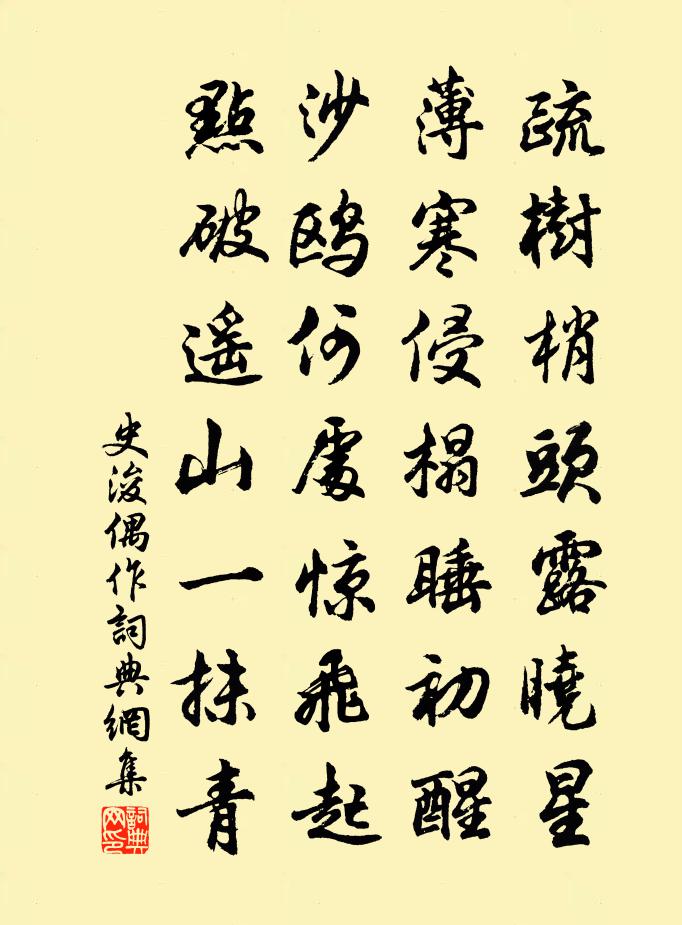 疏樹梢頭露曉星
薄寒侵榻睡初醒
沙鸥何處惊飛起
點破遥山一抹青
史浚偶作詞典網集
詞典网印